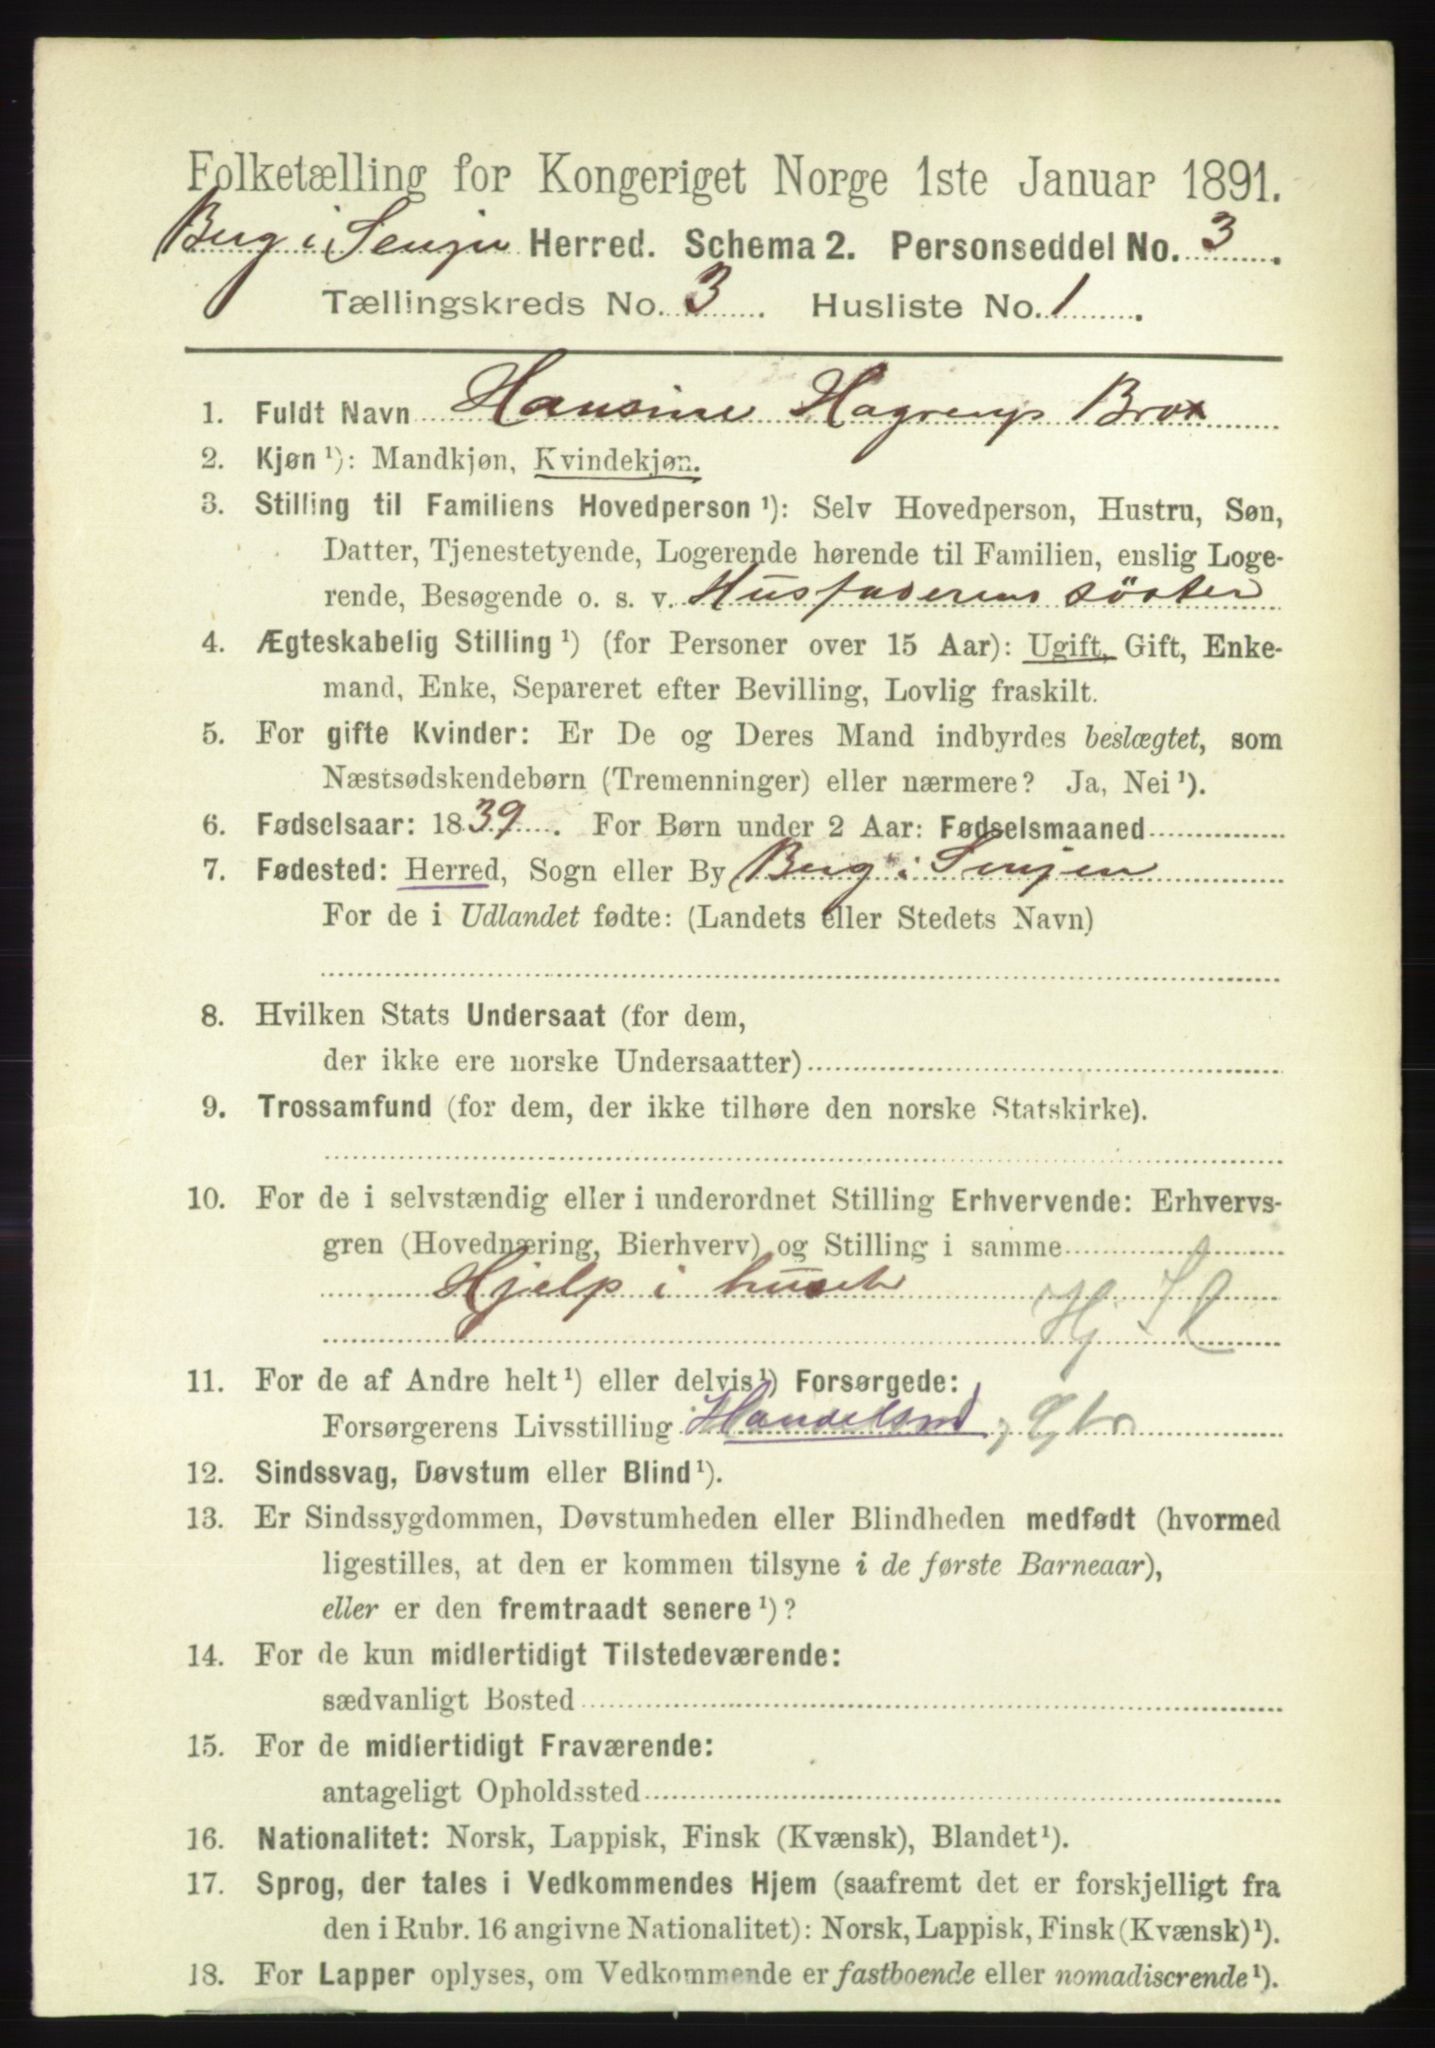 Folketælling for Kongeriget Norge 1ste Januar 1891.
Berg i Senjen Herred. Schema 2. Personseddel No. 3.
Tællingskreds No. 3. Husliste No. 1.
1. Fuldt Navn Hansine Hagerup Brox
2. Kjøn ¹): Mandkjøn, Kvindekjøn.
3. Stilling til Familiens Hovedperson ¹): Selv Hovedperson, Hustru, Søn,
Datter, Tjenestetyende, Logerende hørende til Familien, enslig Loge-
rende, Besøgende o. s. v. Husfaderens söster
4. Ægteskabelig Stilling ¹) (for Personer over 15 Aar): Ugift, Gift, Enke-
mand, Enke, Separeret efter Bevilling, Lovlig fraskilt.
5. For gifte Kvinder: Er De og Deres Mand indbyrdes beslægtet, som
Næstsødskendebørn (Tremenninger) eller nærmere? Ja, Nei ¹).
6. Fødselsaar: 1839. For Børn under 2 Aar: Fødselsmaaned
7. Fødested: Herred, Sogn eller By Berg i Senjen
For de i Udlandet fødte: (Landets eller Stedets Navn)
8. Hvilken Stats Undersaat (for dem,
der ikke ere norske Undersaatter)
9. Trossamfund (for dem, der ikke tilhøre den norske Statskirke).
10. For de i selvstændig eller i underordnet Stilling Erhvervende: Erhvervs-
gren (Hovednæring, Bierhverv) og Stilling i samme
Hjelp i huset
11. For de af Andre helt ¹) eller delvis ¹) Forsørgede:
Forsørgerens Livsstilling Handelsmd
12. Sindssvag, Døvstum eller Blind ¹).
13. Er Sindssygdommen, Døvstumheden eller Blindheden medfødt (hvormed
ligestilles, at den er kommen tilsyne i de første Barneaar),
eller er den fremtraadt senere ¹)?
14. For de kun midlertidigt Tilstedeværende:
sædvanligt Bosted
15. For de midlertidigt Fraværende:
antageligt Opholdssted
16. Nationalitet: Norsk, Lappisk, Finsk (Kvænsk), Blandet ¹).
17. Sprog, der tales i Vedkommendes Hjem (saafremt det er forskjelligt fra
den i Rubr. 16 angivne Nationalitet): Norsk, Lappisk, Finsk (Kvænsk) ¹).
18. For Lapper oplyses, om Vedkommende er fastboende eller nomadiserende ¹).